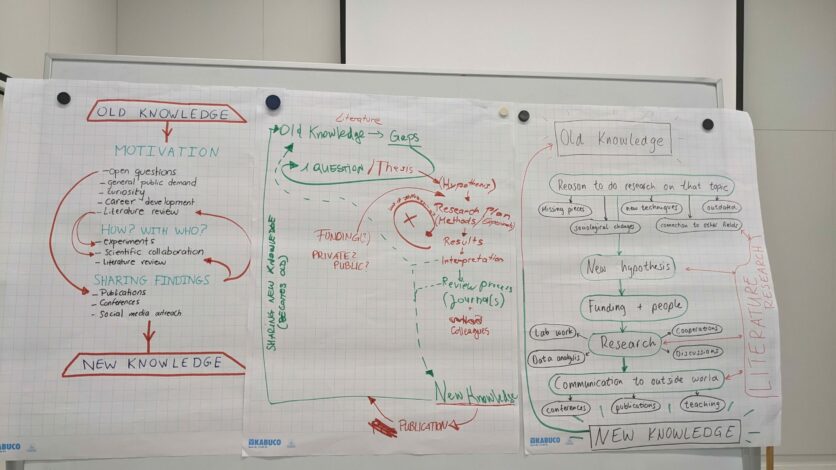 OLD KNOWLEDGE
MOTIVATION
- open questions
- general public demand
- curiosity
- Career development
- Literature review
HOW? WITH WHO?
- experiments
- Scientific collaboration
- Literature review
SHARING FINDINGS
- Publications
- Conferences
- Social media outreach
NEW KNOWLEDGE
KABUCO
Literature
Old Knowledge → Gaps
1 QUESTION / Thesis
(Hypothesis)
Research Plan
(Methods/
Results
Interpretation
Review process
(Journals)
+
Colleagues
FUNDING(?)
PRIVATE?
PUBLIC?
SHARING NEW KNOWLEDGE
(BECOMES OLD)
New Knowledge
PUBLICATION
KABUCO
Old Knowledge
Reason to do research on that topic
Missing pieces
new techniques
outdated
sociological changes
connection to other fields
New hypothesis
Funding + people
Lab work
Cooperations
Research
Data analysis
Discussions
Communication to outside world
conferences
publications
teaching
NEW KNOWLEDGE
LITERATURE
RESEARCH
KABUCO